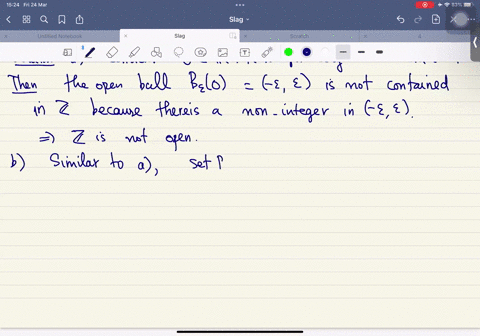 15:24 Fri 24 Mar
93%
Slag
Untitled Notebook
Slag
Then the open ball Bε(0) = (-ε, ε) is not contained
in ℤ because there is a non-integer in (-ε, ε).
⇒ ℤ is not open.
b) Similar to a), set